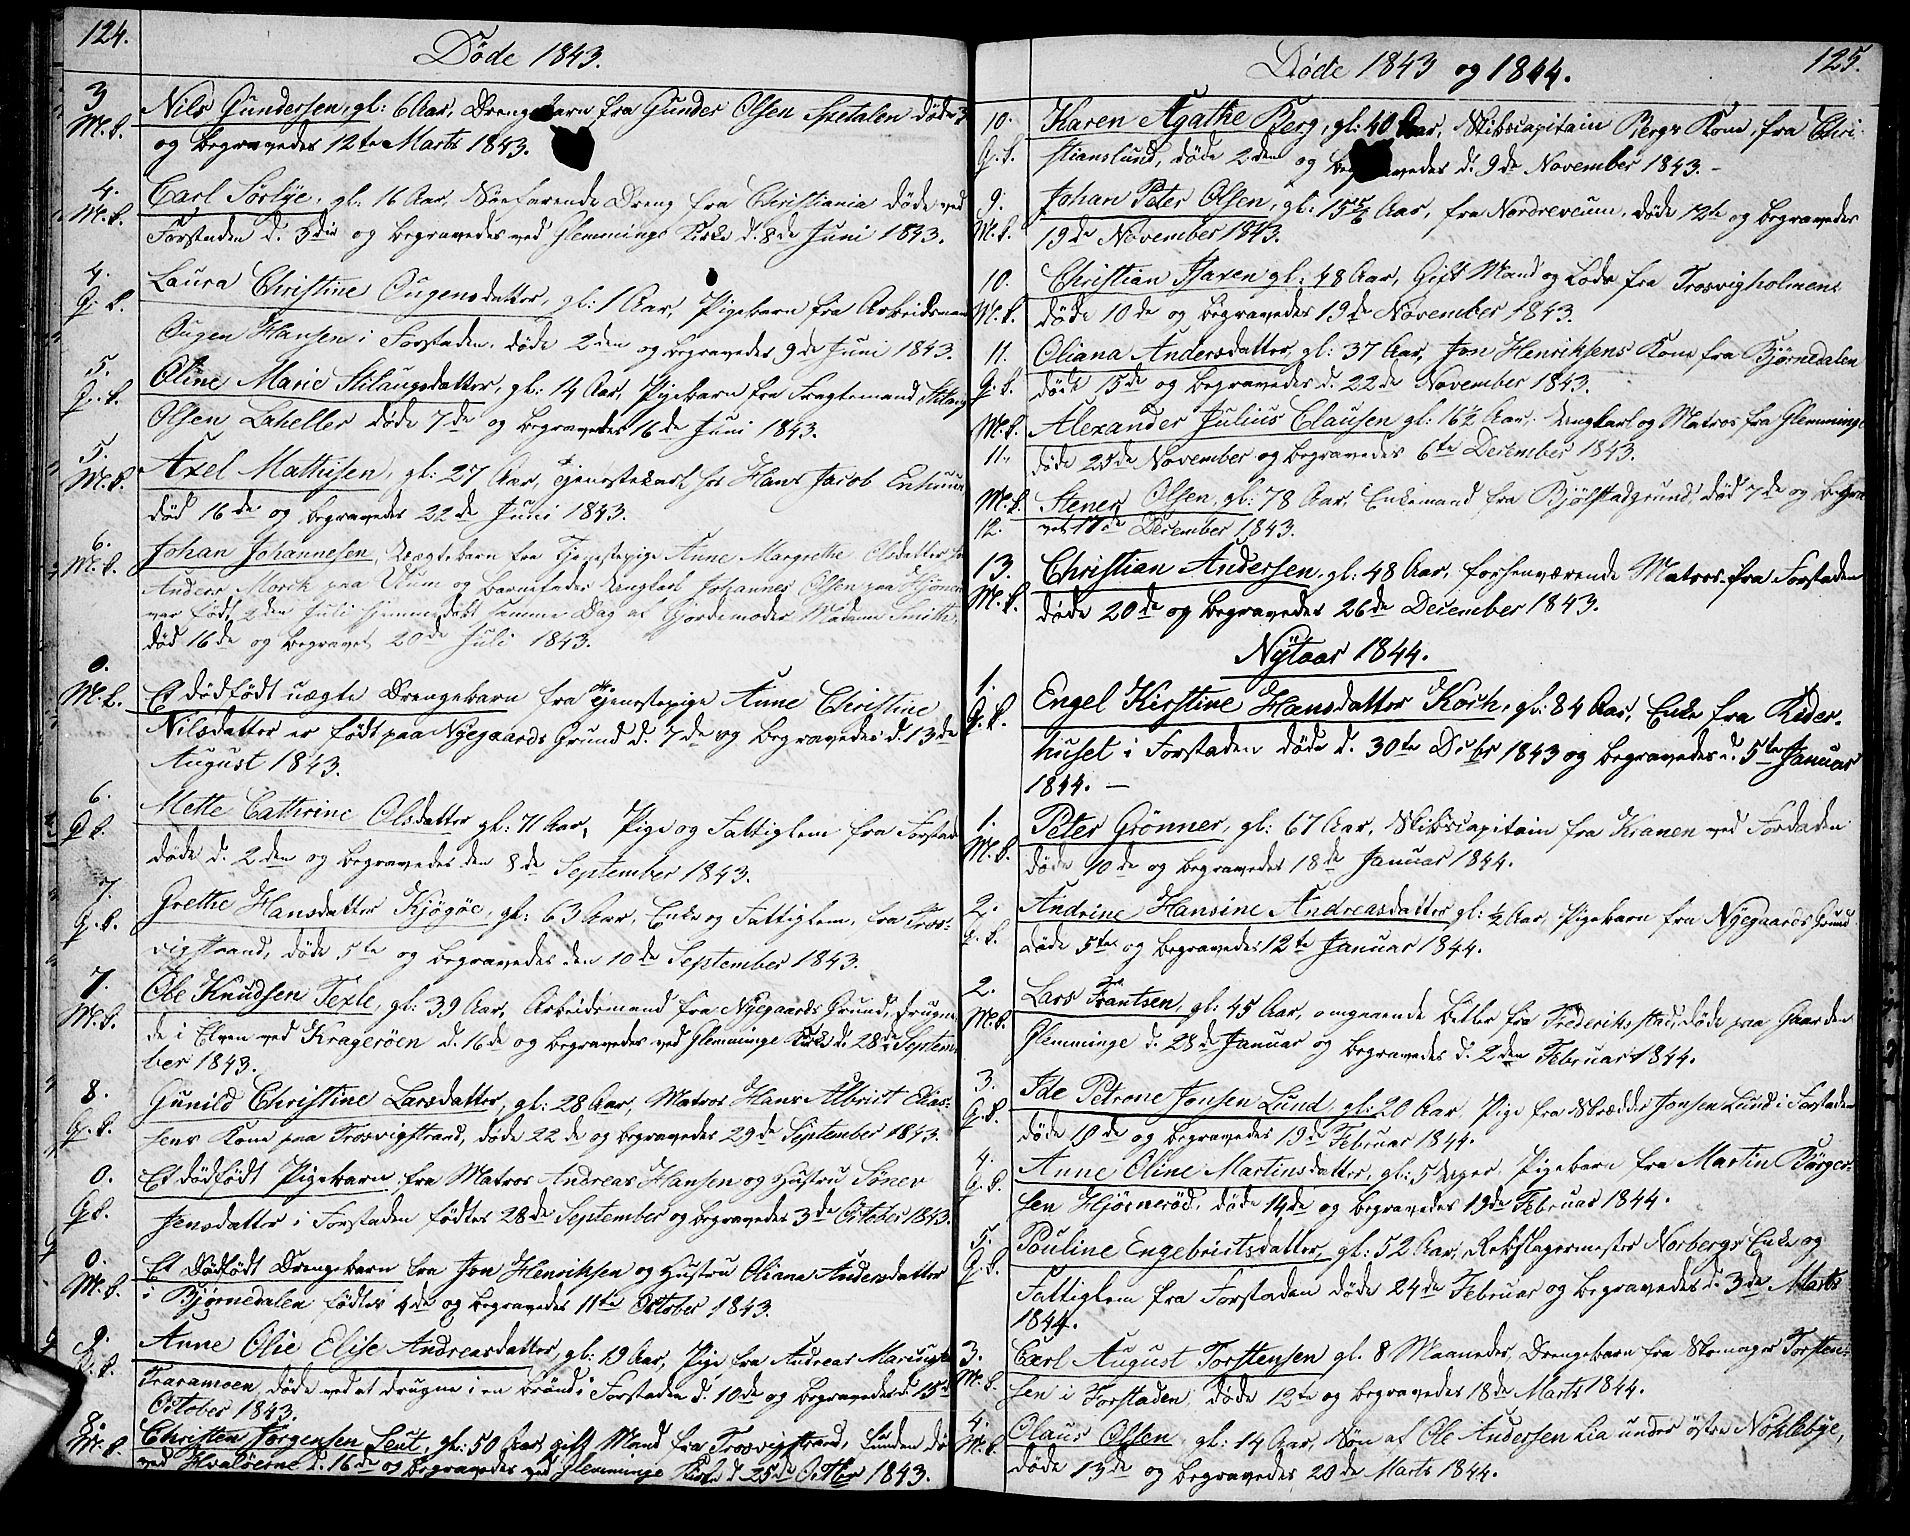 124.
Døde 1843.
3 Nils Gundersen, gl: 6 Aar, Drengebarn fra Gunder Olsen Spetalen døde 3
M.k. og begravedes 12te Marts 1843.
4. Carl Sørlye, gl: 16 Aar, Søefarende Dreng fra Christiania døde ved
M.k. Forstaden d. 3die og begravedes ved Glemminge Kirke d. 8de Juni 1843.
4. Laura Christine Ougensdatter, gl: 1 Aar, Pigebarn fra Arbeidsmand
Q.k. Ougen Hansen i Forstaden, døde 2den og begravedes 9de Juni 1843.
5. Oline Marie Stilaugsdatter, gl: 14 Aar, Pigebarn fra Fragtemand Stilaug
Q.k. Olsen Lahelle døde 7de og begravedes 16de Juni 1843.
5. Axel Mathisen, gl: 27 Aar, Tjenestekarl hos Hans Jacob
M.k. død 16de og begravedes 22de Juni 1843.
6. Johan Johannesen, Uægtebarn fra Tjenestepige Anne Margrethe Olsdatter
M.k. Anders Morck paa og Barnefader Ungkarl Johannes Olsen paa
var født 2den Juli hjemmedøbt samme Dag af Gjordemoder Madame Smith,
død 16de og begravet 20de Juli 1843.
0. Et dødfødt uægte Drengebarn fra Tjenestepige Anne Christine
M.k. Nilsdatter er født paa Nyegaards Grund d. 7de og begravedes d. 13de
August 1843.
6. Mette Cathrine Olsdatter gl: 71 Aar, Pige og Fattiglem fra Forstaden
Q.k. døde d. 2den og begravedes den 8de September 1843.
7. Grethe Hansdatter Kjøgøe, gl: 63 Aar, Enke og Fattiglem, fra Tros-
Q.k. vigstrand, døde 5te og begravedes den 10de September 1843.
7. Ole Knudsen Texle, gl: 39 Aar, Arbeidsmand fra Nyegaards Grund, drugne-
M.k. de i Elven ved Kragerøen d. 16de og begravedes ved Glemminge Kirke d. 28de Septem-
ber 1843.
8. Gunild Christine Larsdatter, gl: 28 Aar, Matros Hans Albrict Elias-
Q.k. sens Kone paa Trosvigstrand, døde 22de og begravedes 29de September 1843.
0. Et dødfødt Pigebarn fra Matros Andreas Hansen og Hustru Søner
Q.k. Jensdatter i Forstaden fødtes 28de September og begravedes 3de October 1843.
0. Et dødfødt Drengebarn fra Jon Henriksen og Hustru Oliana Andersdatter
M.k. i Bjørnedalen fødtes 4de og begravedes 11te October 1843.
9. Anne Olie Elise Andreasdatter, gl: 19 Aar, Pige fra Andreas
Q.k. Traramoen, døde ved at drugne i en Brønd i Forstaden d. 10de og begravedes d. 15de
October 1843.
8. Christen Jørgensen Leut, gl: 50 Aar, gift Mand fra Trosvigstrand, funden død
M.k. ved Hvalørerne d. 16de og begravedes ved Glemminge Kirke d. 25de Octbr 1843.
125.
Døde 1843 og 1844.
10. Karen Agathe Berg, gl: 40 Aar, Skibscapitain Bergs Kone, fra Chri-
Q.k. stianslund, døde 2den og begravedes d. 9de November 1843. -
9. Johan Peter Olsen, gl: 15 Aar, fra Nordreveum, døde 12te og begravedes
M.k. 19de November 1843.
10. Christian Haxen gl: 48 Aar, Gift Mand og Lods fra Trosvigholmene
M.k. døde 10de og begravedes 19de November 1843.
11. Oliana Andersdatter, gl: 37 Aar, Jon Henriksens Kone fra Bjørnedalen
Q.k. døde 15de og begravedes d. 22de November 1843.
M.k. Alexander Julius Clausen gl: 16½ Aar, Ungkarl og Matros fra Glemminge
11. døde 25de November og begravedes 6te December 1843.
M.k. Stener Olsen, gl: 78 Aar, Enkemand fra Bjølstadgrund, død 7de og begra-
12. vet 17de December 1843.
13. Christian Andersen, gl: 48 Aar, forhenværende Matros fra Forstaden
M.k. døde 20de og begravedes 26de December 1843.
Nÿtaar 1844.
1. Engel Kirstine Hansdatter Koch, gl: 84 Aar, Enke fra Reder-
Q.k. huset i Forstaden døde d. 30te Decbr 1843 og begravedes d. 5te Januar
1844. -
1. Peter Grønner, gl: 67 Aar, Skibscapitain fra Kranen ved Forstaden
M.k. døde 10de og begravedes 18de Januar 1844.
2. Andrine Hansine Andreasdatter gl: ½ Aar, Pigebarn fra Nyegaards Grund
Q.k. døde 5te og begravedes 12te Januar 1844.
2. Lars Frantsen, gl: 45 Aar, omgaaende Betler fra Frederiksstad, døde paa Gaarden
M.k. Glemminge d. 28de Januar og begravedes d. 2den Februar 1844.
3. Ide Petrone Jonsen Lund, gl: 20 Aar, Pige fra Skrædder Jonsen Lund i Forstaden
Q.k. døde 10de og begravedes 19de Februar 1844.
4. Anne Oline Martinsdatter, gl: 5 Uger, Pigebarn fra Martin Børger-
Q.k. sen Hjørnerød, døde 14de og begravedes 19de Februar 1844.
5. Pouline Engebrictsdatter, gl: 52 Aar, Rebslagermester Norbergs Enke og
Q.k. Fattiglem fra Forstaden døde 24de Februar og begravedes d. 3de Marts
1844.
3. Carl August Torstensen gl. 8 Maaneder, Drengebarn fra Skomager Torsten-
M.k. sen i Forstaden, døde 12te og begravedes 18de Marts 1844.
4. Olaus Olsen, gl: 14 Aar, Søn af Ole Andersen Lia under østre Nøklebye,
M.k. døde 13de og begravedes 20de Marts 1844.